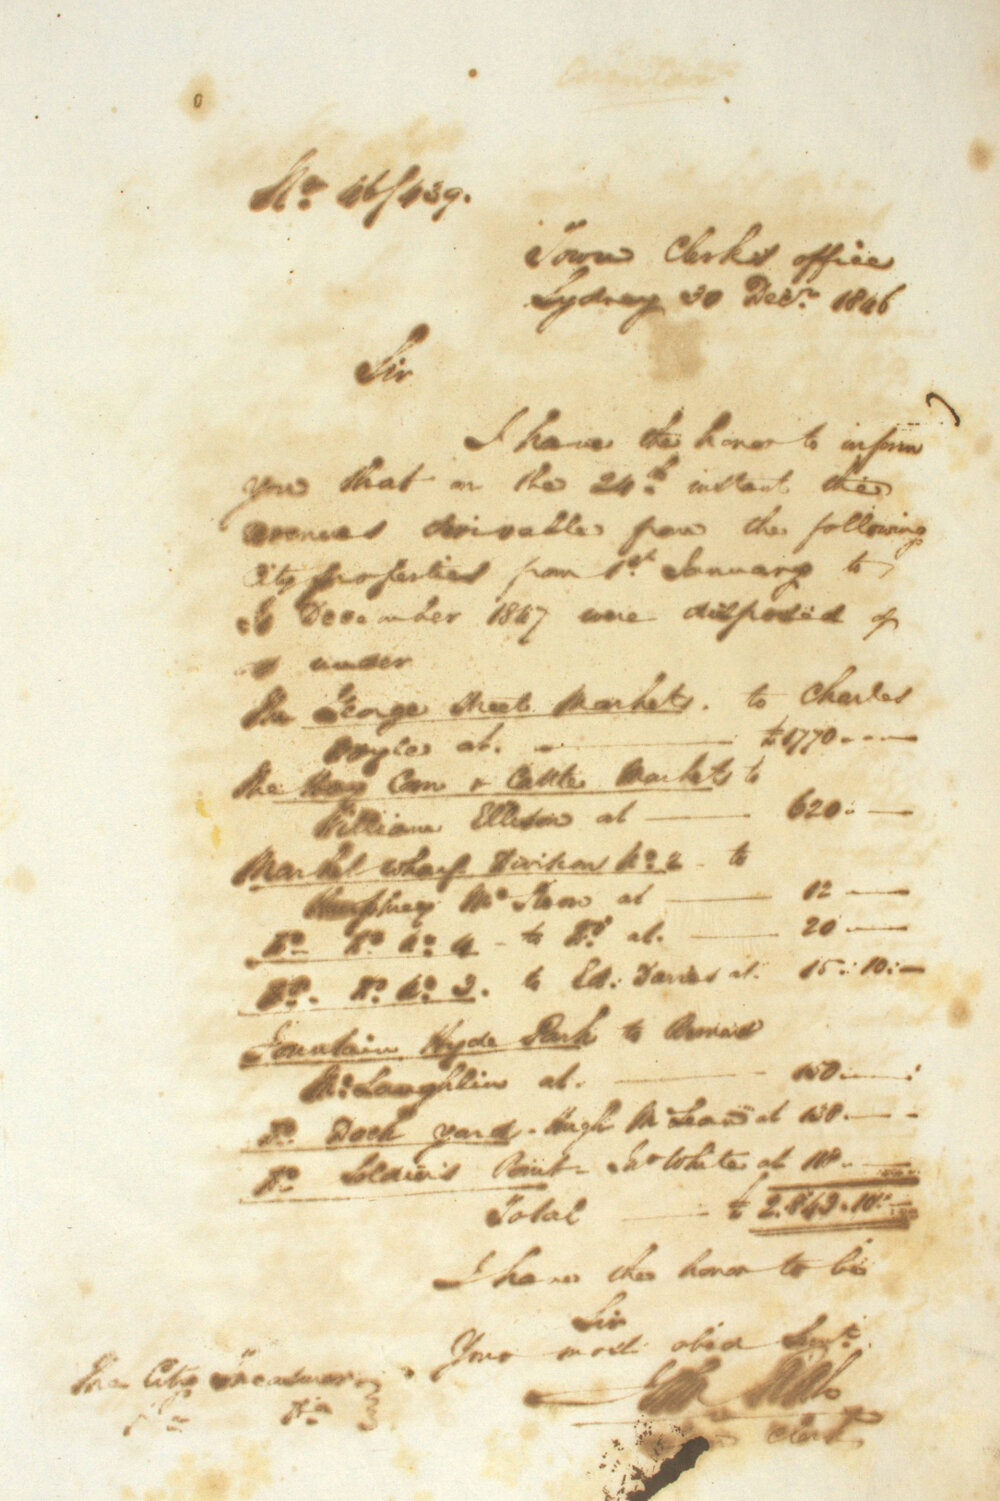 No 46/439.
Town Clerks office
Sydney 30 Decr. 1846
Sir
I have the honor to inform
you that on the 24th instant the
revenues derivable from the following
City properties from 1st January to
December 1847 were disposed of
as under
The George Street Markets. to Charles
at. £1770
The Hay Corn & Cattle Markets to
William Ellison at 620
Market Wharf Division No 2 to
Humphrey Mc at 12
Do Do No 4 - to Do at. 20
Do. Do No 3. to Ed: Davies at. 15:10:
Fountain Hyde Park to
McLaughlin at. 150
Do Dock yard - Hugh at 138
Do Soldiers Point - Jno White at 118
Total £2.843.10:
I have the honor to be
Sir
Your most obed Servt.
The City Treasurer
Clerk